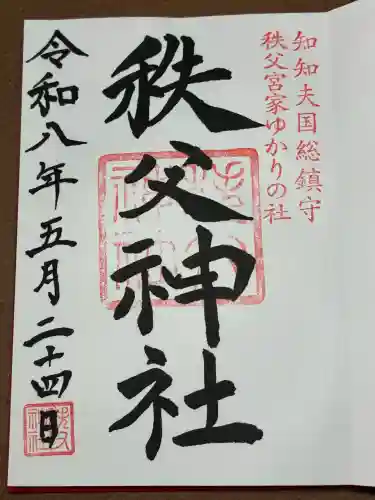 知知夫国総鎮守
秩父宮家ゆかりの社
秩父神社
令和八年五月二十四日